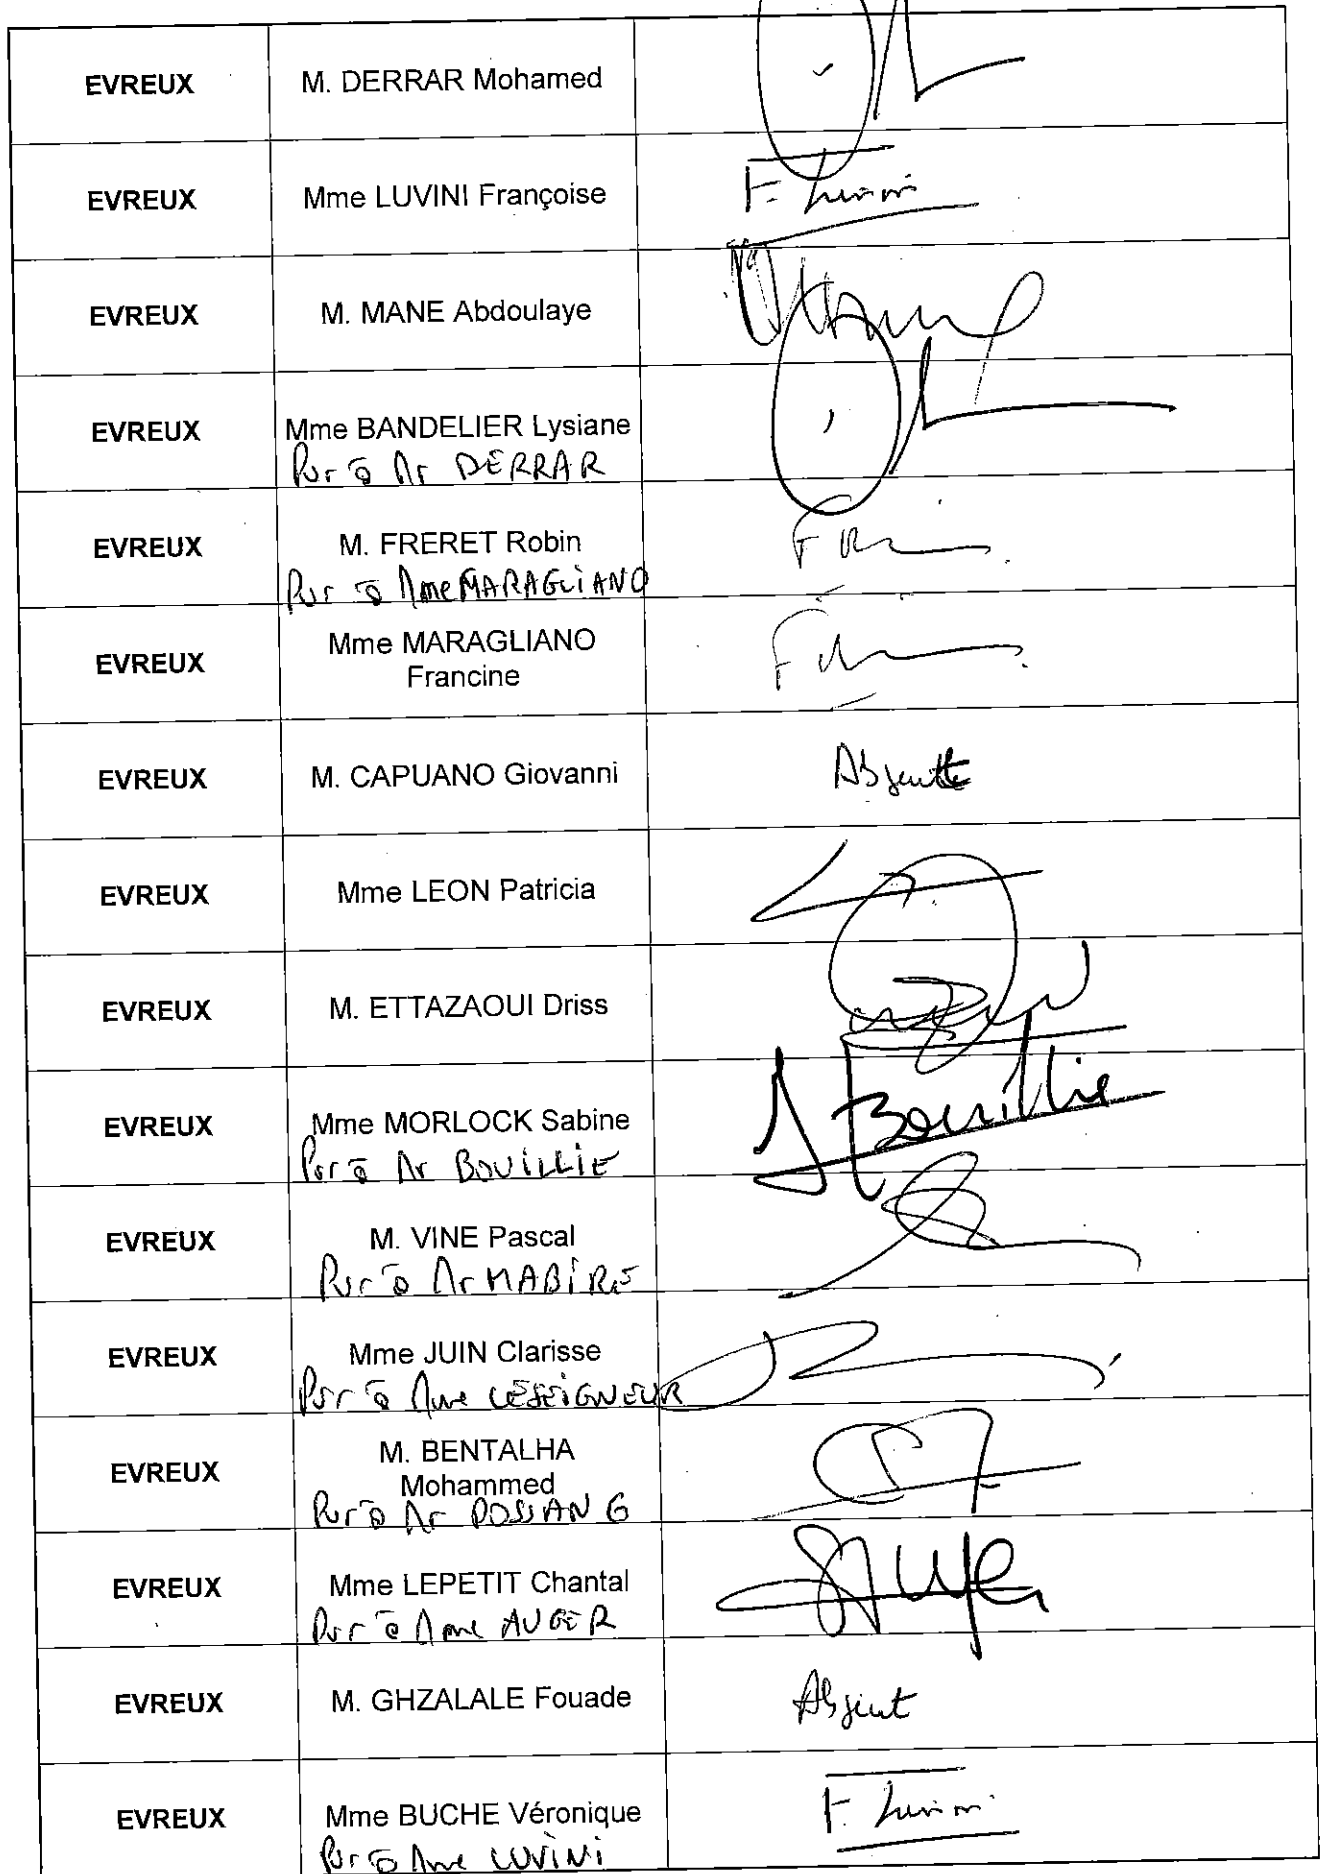 EVREUX M. DERRAR Mohamed
EVREUX Mme LUVINI Françoise F. Luvini
EVREUX M. MANE Abdoulaye
EVREUX Mme BANDELIER Lysiane
DERRAR
EVREUX M. FRERET Robin
Mme MARAGLIANO
EVREUX Mme MARAGLIANO
Francine
EVREUX M. CAPUANO Giovanni Absent
EVREUX Mme LEON Patricia
EVREUX M. ETTAZAOUI Driss
EVREUX Mme MORLOCK Sabine Bouillie
BOUILLIE
EVREUX M. VINE Pascal
MABIRE
EVREUX Mme JUIN Clarisse
Mme LESEIGNEUR
EVREUX M. BENTALHA
Mohammed
EVREUX Mme LEPETIT Chantal
Mme AUGER
EVREUX M. GHZALALE Fouade Absent
EVREUX Mme BUCHE Véronique F. Luvini
Mme LUVINI